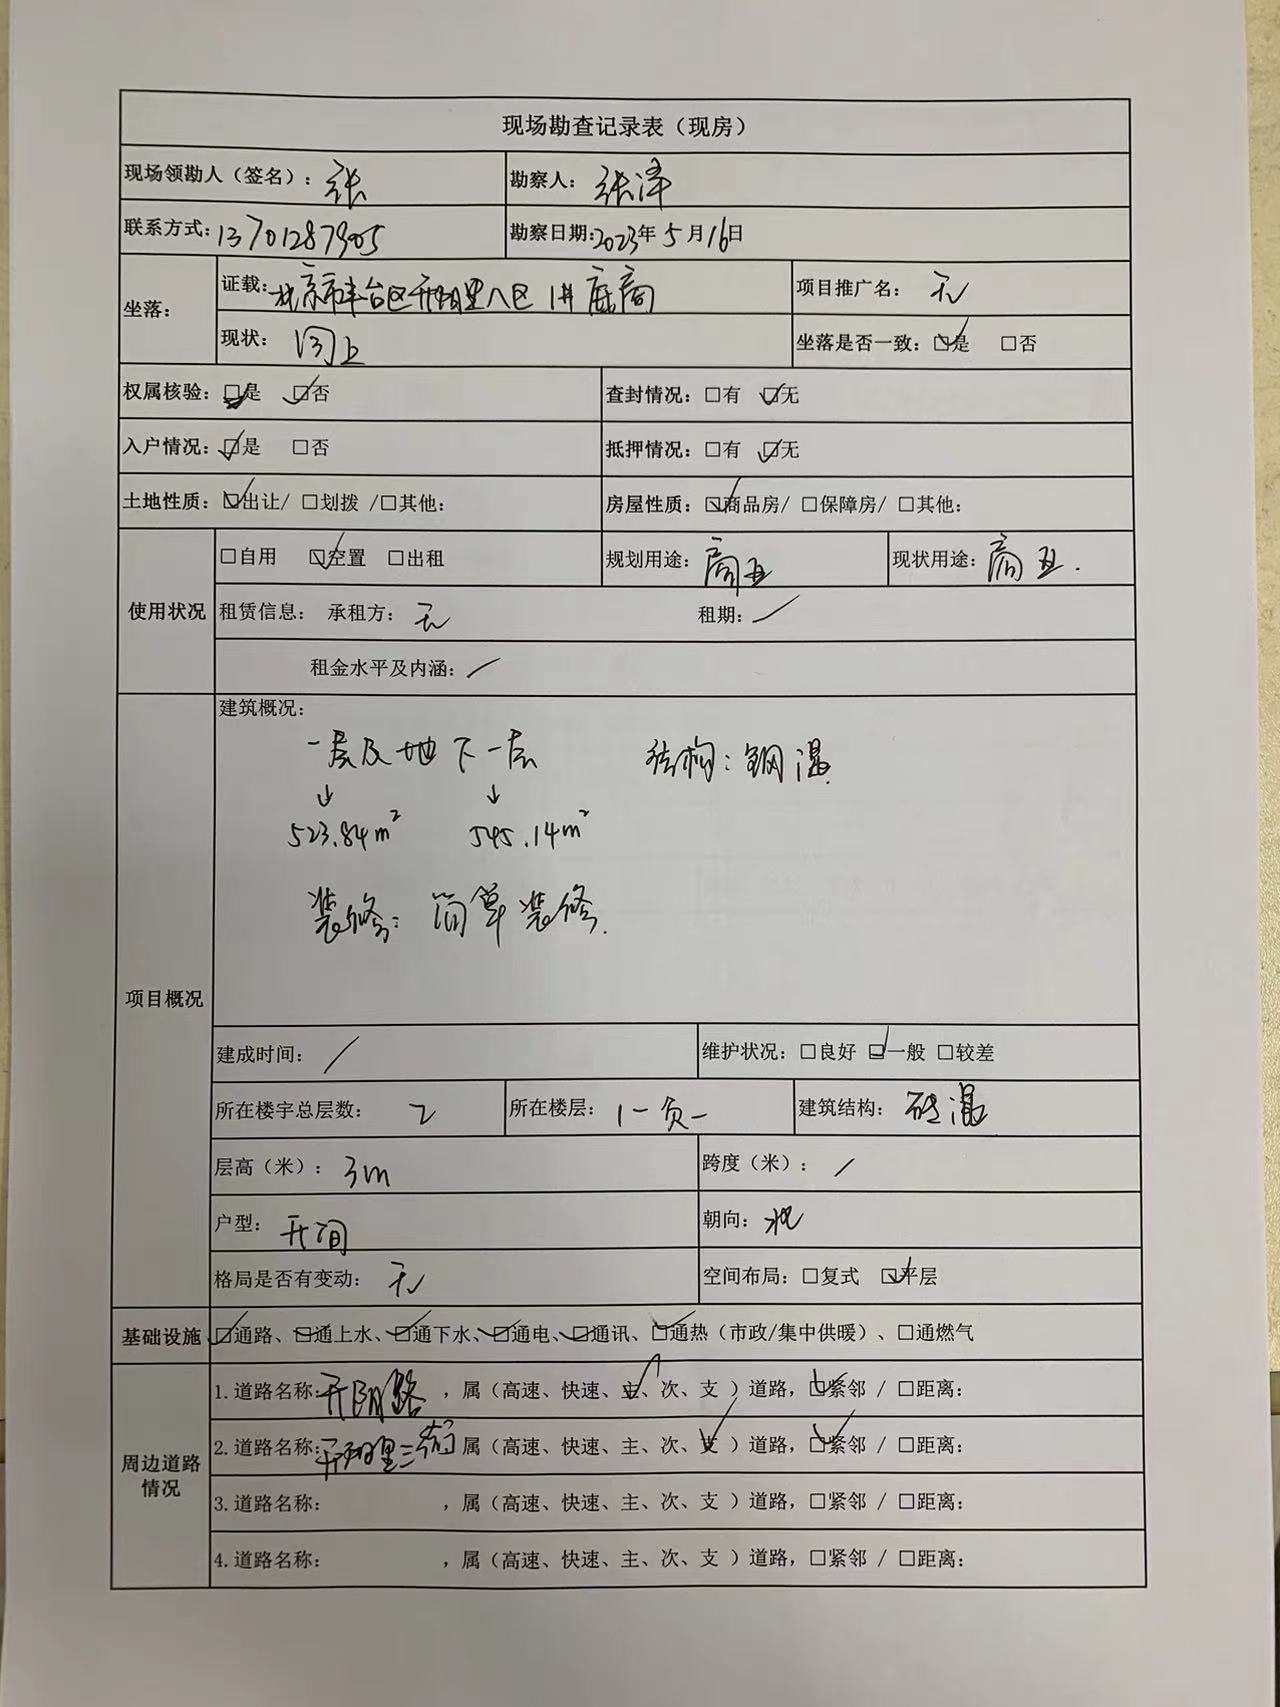 现场勘查记录表（现房）
现场领勘人（签名）：张
勘察人：张泽
联系方式：13701287905
勘察日期：2023年5月16日
坐落：
证载：北京市丰台区开阳里八区1#底商
项目推广名：无
现状：同上
坐落是否一致：☑是 □否
权属核验：□是 ☑否
查封情况：□有 ☑无
入户情况：☑是 □否
抵押情况：□有 ☑无
土地性质：☑出让/ □划拨 /□其他：
房屋性质：☑商品房/ □保障房/ □其他：
使用状况
□自用 ☑空置 □出租
规划用途：商业
现状用途：商业.
租赁信息： 承租方：无 租期：/
租金水平及内涵：/
项目概况
建筑概况：
一层及地下一层 结构：钢混
↓ ↓
523.84m² 545.14m²
装修：简单装修.
建成时间：/
维护状况：□良好 ☑一般 □较差
所在楼宇总层数：2
所在楼层：1-负一
建筑结构：砖混
层高（米）：3m
跨度（米）：/
户型：开间
朝向：北
格局是否有变动：无
空间布局：□复式 ☑平层
基础设施
☑通路、☑通上水、☑通下水、☑通电、☑通讯、☑通热（市政/集中供暖）、□通燃气
周边道路情况
1.道路名称：开阳路，属（高速、快速、主、次、支）道路，☑紧邻 / □距离：
2.道路名称：开阳里三街 属（高速、快速、主、次、支）道路，☑紧邻 / □距离：
3.道路名称： ，属（高速、快速、主、次、支）道路，□紧邻 / □距离：
4.道路名称： ，属（高速、快速、主、次、支）道路，□紧邻 / □距离：